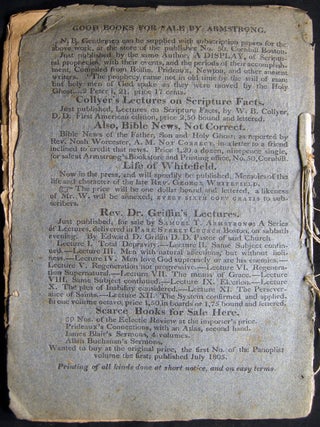 GOOD BOOKS FOR SALE BY ARMSTRONG.
N. B. Gentlemen can be supplied with subscription papers for the
above work, at the store of the publisher No. 50, Cornhill Boston.
Just published, by the same Author, A DISPLAY, of Scriptural
prophecies, with their events, and the periods of their accomplish-
ment. Compiled from Rollin, Prideaux, Newton, and other eminent
writers. "The prophecy came not in old time by the will of man:
but holy men of God spake as they were moved by the Holy
Ghost."—2 Peter i, 21. price 17 cents.
Collyer's Lectures on Scripture Facts.
Just published, Lectures on Scripture Facts, by W. B. Collyer,
D. D. First American edition, price 2,50 bound and lettered.
Also, Bible News, Not Correct.
Bible News of the Father, Son and Holy Ghost; as reported by
Rev. Noah Worcester, A. M. NOT CORRECT, in a letter to a friend
inclined to credit that news. Price 1,20 a dozen, ninepence single,
for sale at Armstrong's Bookstore and Printing office, No. 50, Cornhill.
Life of Whitefield.
Now in the press, and will speedily be published, Memoirs of the
life and character of the late REV. GEORGE WHITEFIELD.
The price will be one dollar bound, and lettered, a likeness
of Mr. W. will be annexed; EVERY SIXTH COPY GRATIS to sub-
scribers.
Rev. Dr. Griffin's Lectures.
Just published, for sale by SAMUEL T. ARMSTRONG; A Series
of Lectures, delivered in PARK STREET CHURCH Boston, on sabbath
evening. By Edward D. Griffin D. D. Pastor of said Church
Lecture I. Total Depravity.—Lecture II. Same Subject contin-
ued.—Lecture III. Men with natural affections, but without holi-
ness.—Lecture IV. Men love God supremely or are his enemies.—
Lecture V. Regeneration not progressive.—Lecture VI. Regenera-
tion Supernatural.—Lecture VII. The means of Grace.—Lecture
VIII. Same Subject continued.—Lecture IX. Election.—Lecture
X. The plea of Inability considered.—Lecture XI. The Persever-
ance of Saints.—Lecture XII. The System confirmed and applied.
In one volume octavo, price 1,50 in boards or 1,75 bound and lettered.
Scarce Books for Sale Here.
Nos. of the Eclectic Review at the importer's price.
Prideaux's Connections, with an Atlas, second hand.
James Blair's Sermons, 4 volumes.
Allan Buchanan's Sermons.
Wanted to buy at the original price, the first No. of the Panoplist
volume the first; published July 1805.
Printing of all kinds done at short notice, and on easy terms.